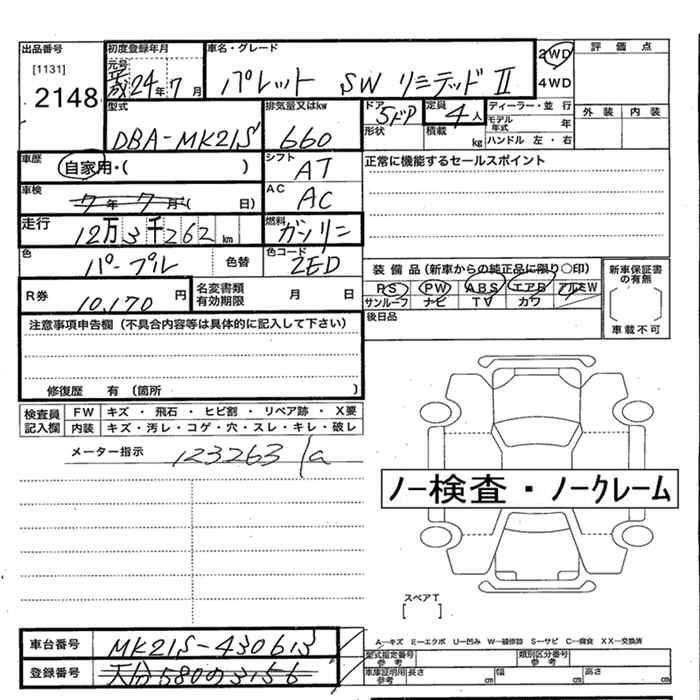 出品番号 初度登録年月 車名・グレード 2WD 評価点
[1131] 元号 平成 24年 7月 パレット SW リミテッド II 4WD
2148
型式 排気量又はkw ドア 定員 ディーラー・並行 外装 内装
DBA-MK21S 660 5ドア 4人 モデル年式 年
形状 積載 kg ハンドル 左・右
車歴 自家用・( ) シフト AT 正常に機能するセールスポイント
車検 7年 7月( 日) AC AC
走行 12万3千262km 燃料 ガソリン
色 パープル 色替 色コード ZED 装備品(新車からの純正品に限り○印) 新車保証書の有無
R券 10,170円 名変書類有効期限 月 日 PS PW ABS エアB アルミW
サンルーフ ナビ TV カワ
後日品 車載不可
注意事項申告欄(不具合内容等は具体的に記入して下さい)
修復歴 有(箇所 )
検査員 FW キズ・飛石・ヒビ割・リペア跡・X要
記入欄 内装 キズ・汚レ・コゲ・穴・スレ・キレ・破レ
メーター指示 123263
ノー検査・ノークレーム
スペアT
[ ]
A—キズ ミ—エクボ U—凹み W—補修跡 S—サビ C—腐食 XX—交換済
車台番号 MK21S-430613 型式指定番号 参考 類別区分番号 参考
登録番号 大分580の3156 車庫証明用参考 長さ cm 幅 cm 高さ cm